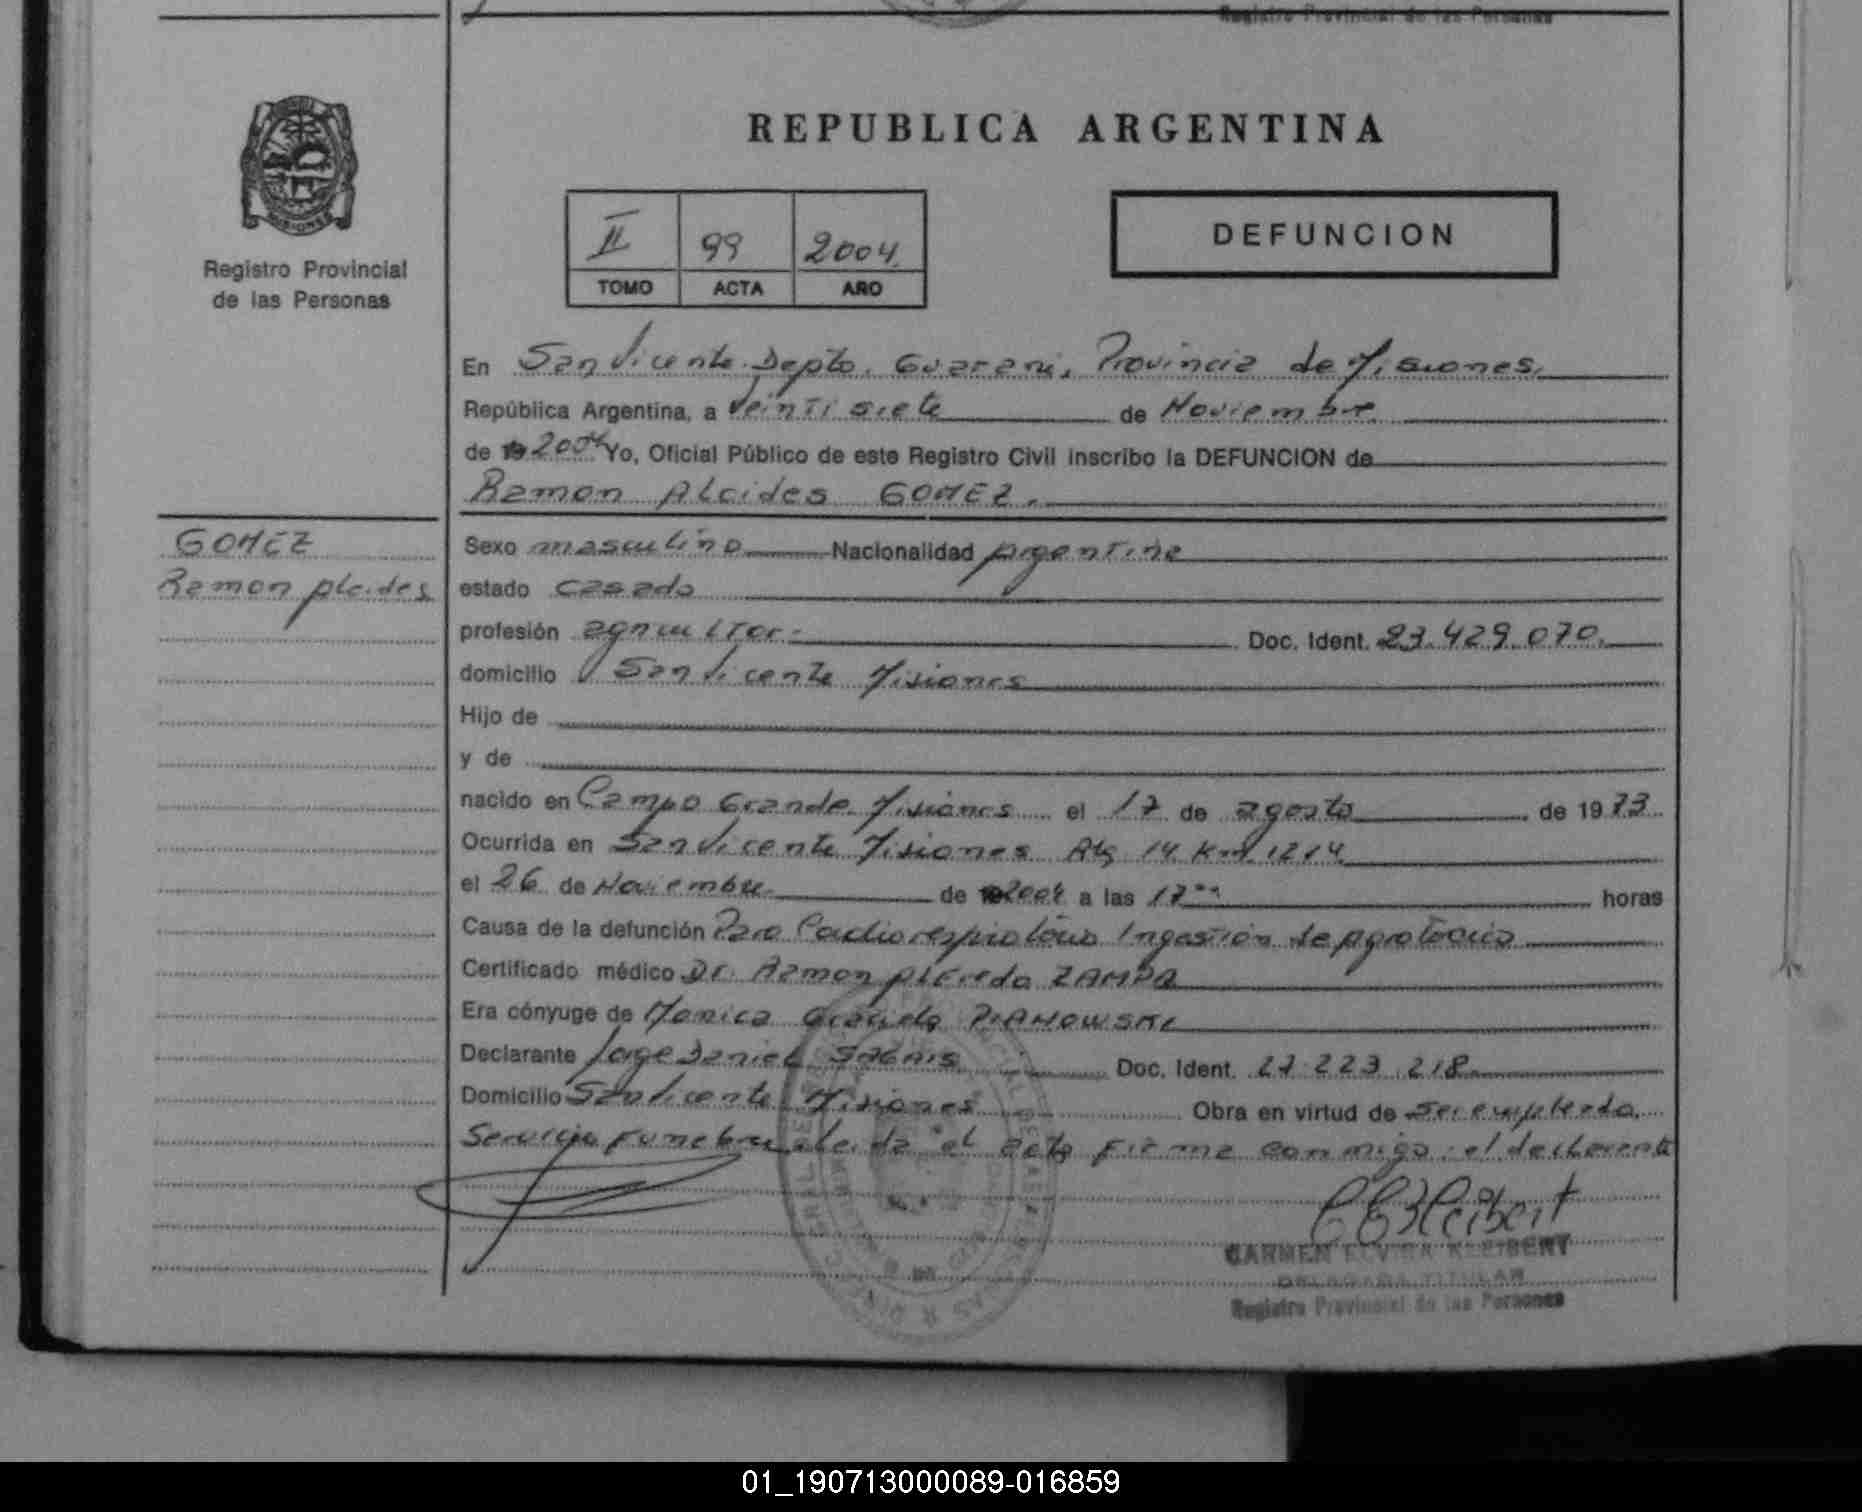 Registro Provincial de las Personas
REPUBLICA ARGENTINA
MISIONES
Registro Provincial
de las Personas
II 99 2004.
TOMO ACTA AÑO
DEFUNCION
En San Vicente Depto. Guarani, Provincia de Misiones.
República Argentina, a Veinti siete de Noviembre
de 19 2004 Yo, Oficial Público de este Registro Civil inscribo la DEFUNCION de
Ramon Alcides GOMEZ.
GOMEZ
Ramon Alcides
Sexo masculino Nacionalidad Argentina
estado Casado
profesión agricultor.- Doc. Ident. 23.429.070.
domicilio San Vicente Misiones
Hijo de
y de
nacido en Campo Grande Misiones el 17 de agosto de 1973
Ocurrida en San Vicente Misiones 14 Km. 1214
el 26 de Noviembre de 2004 a las 17ºº horas
Causa de la defunción Paro Cardiorespiratorio Ingestión de Agrotoxico
Certificado médico Dr. Ramon Alfredo ZAMPA
Era cónyuge de Monica Graciela PIANOWSKI
Declarante Jorge Daniel Doc. Ident. 27.223.218
Domicilio San Vicente Misiones Obra en virtud de ser empleado
Servicio Funebre leida el acta firma conmigo el declarante
CARMEN ELVIRA KLEIBERT
DELEGADA TITULAR
Registro Provincial de las Personas
01_190713000089-016859